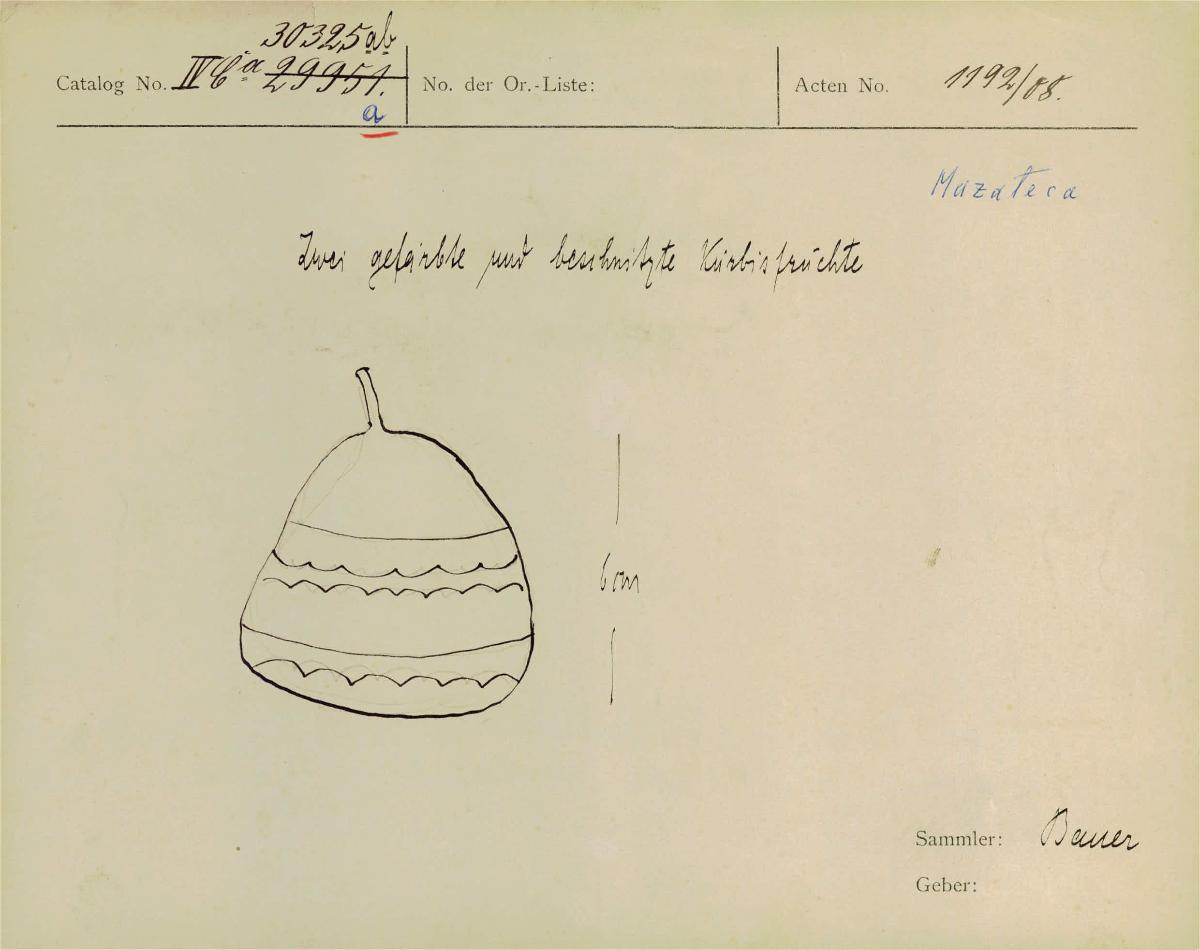 30325ab
Catalog No. IV Ca 29951.
a
No. der Or.-Liste:
Acten No. 1192/08.
Mazateca
Zwei gefärbte und beschnitzte Kürbisfrüchte
6 cm
Sammler: Bauer
Geber: